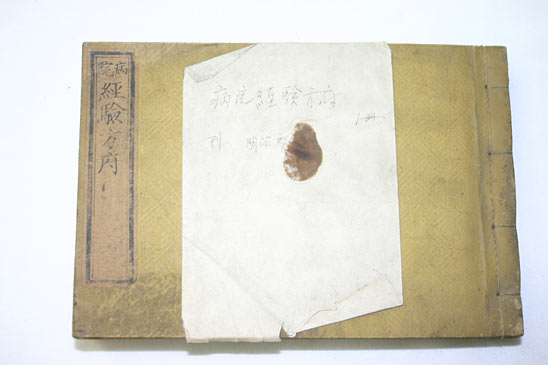 病院
經驗方府
病院經驗方府
1冊
刊 明治